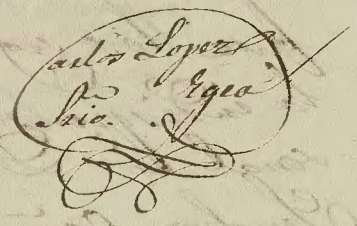 Carlos Lopez
Srio. Egea